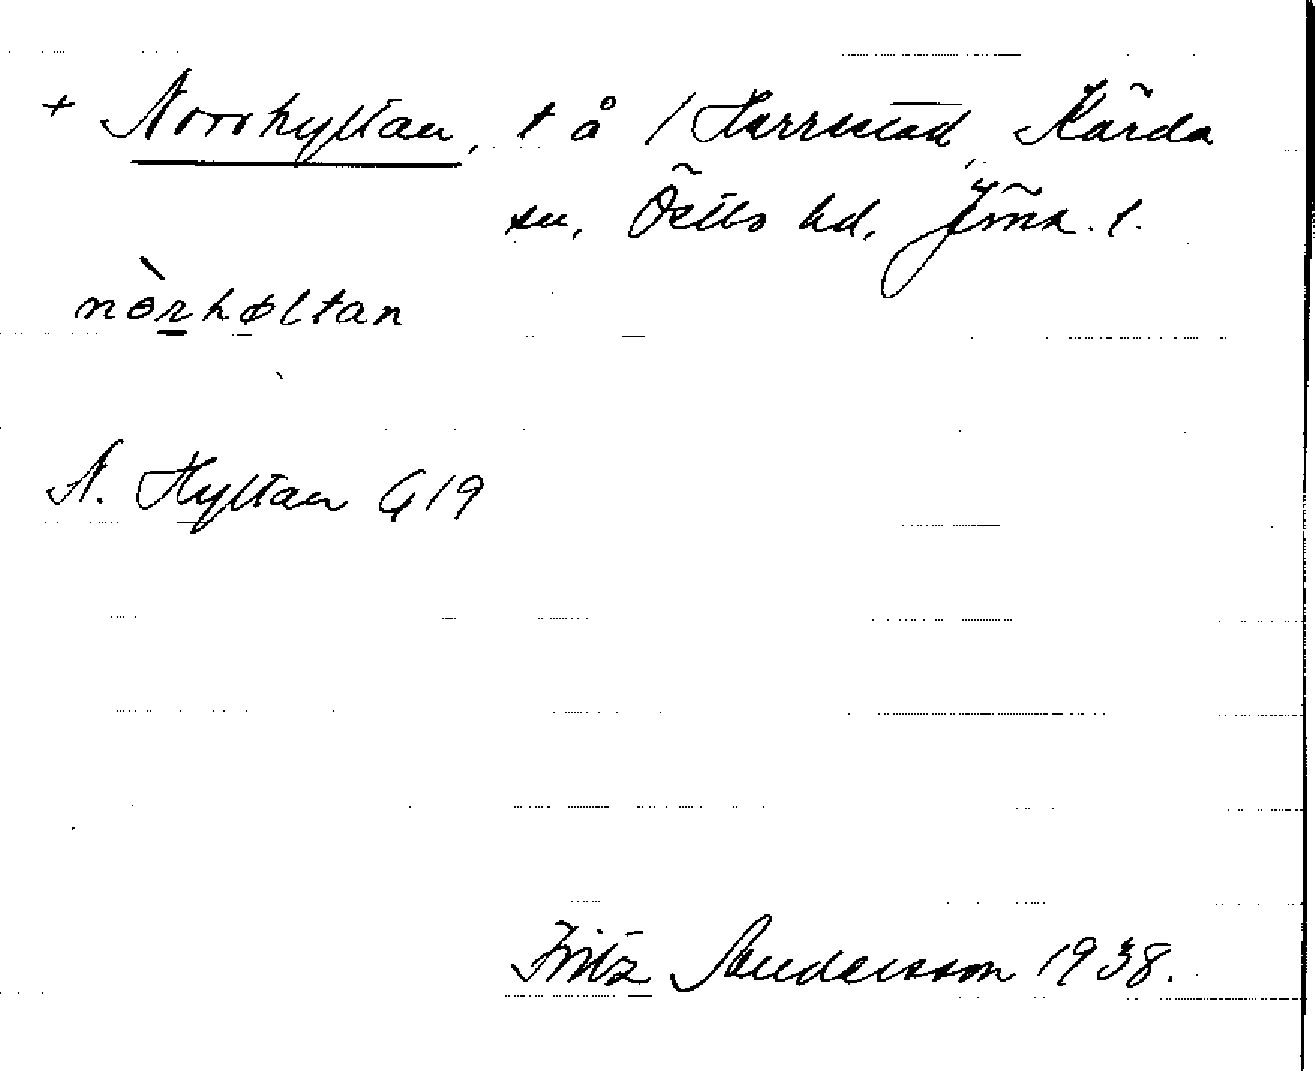 + Norrhyltan, t å / Harrestad, Kärda
sn, Östbo hd, Jönk. l.
nòrhøltan
N. Hyltan G19
Fritz Andersson 1938.